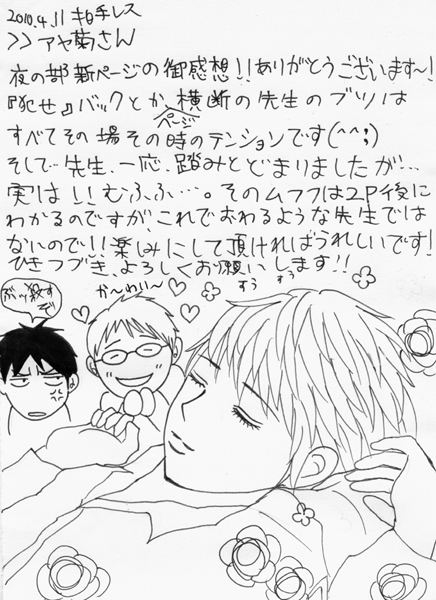 2010.4.11 拍手レス
>>アヤ菊さん
夜の部新ページの御感想!!ありがとうございます〜!
『犯せ』バックとか、横断の先生のブツは
ページ
すべてその場その時のテンションです(^^;)
そして…先生、一応、踏みとどまりましたが…
実は!!むふふ…。そのムフフは2P後に
わかるのですが、これでおわるような先生では
ないので!!楽しみにして頂ければうれしいです!
ひきつづき、よろしくお願いします!!
ブッ殺すぞ
か〜わい〜
すう
すう